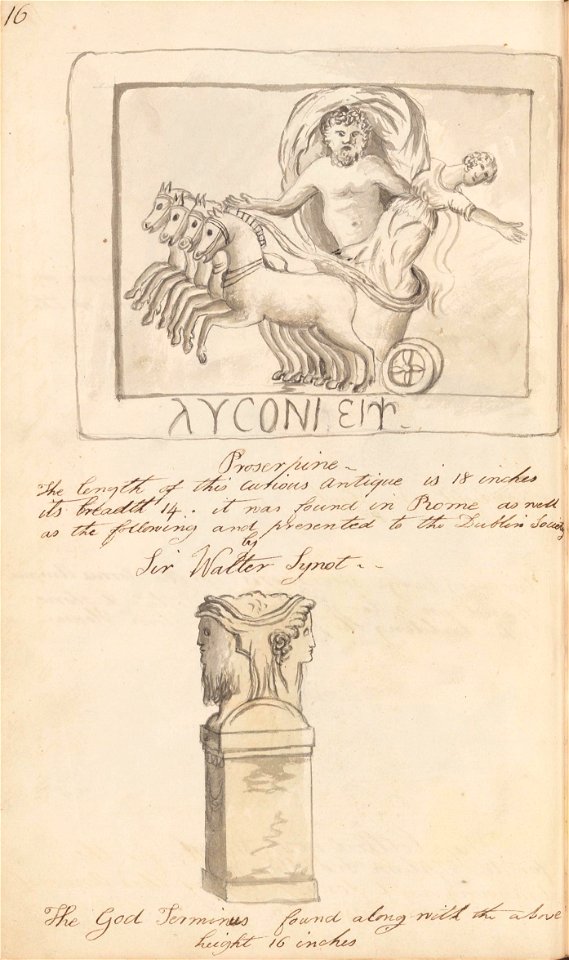 16
λΥCΟΝΙ ΕΙΨ.
Proserpine -
The length of this curious antique is 18 inches
its breadth 14. it was found in Rome as well
as the following and presented to the Dublin Society
by
Sir Walter Synot - -
The God Terminus found along with the above
height 16 inches